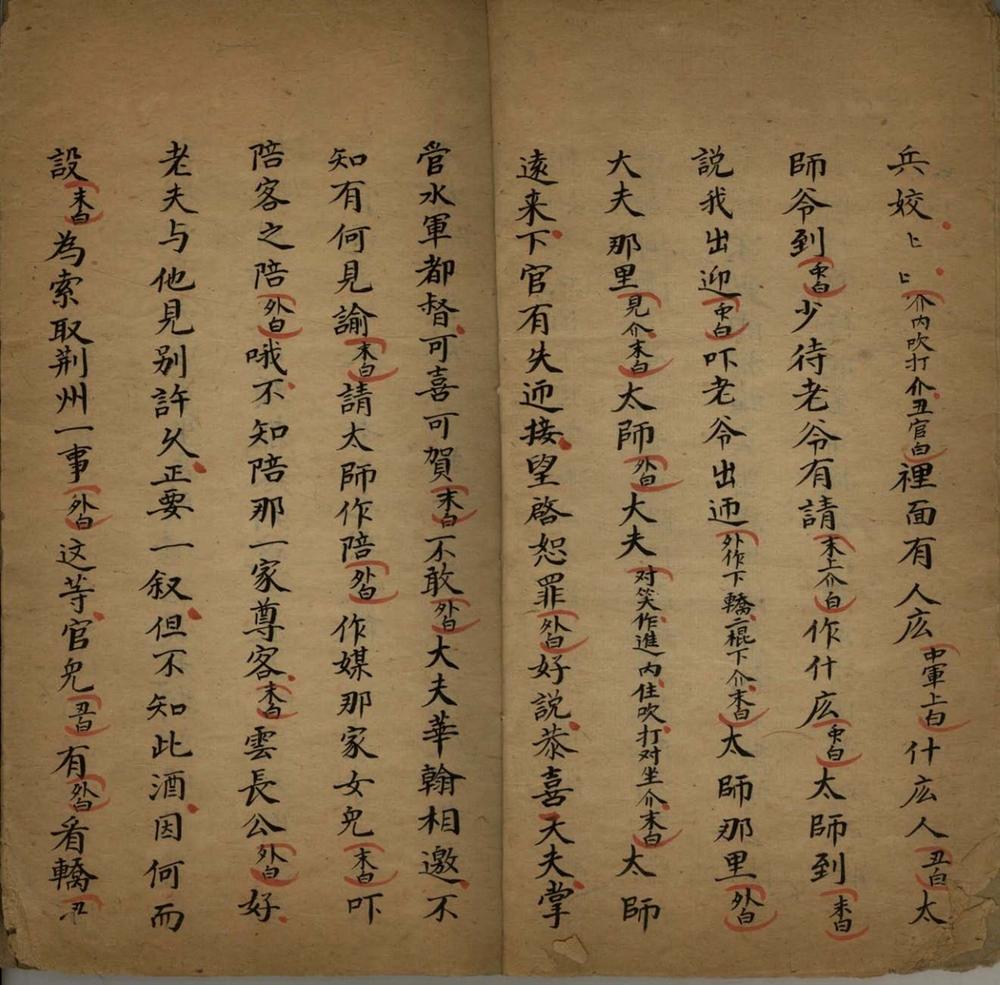 兵姣〻〻介内吹打介丑官白裡面有人庅中軍上白什庅人丑白太
師爷到中白少待老爷有請末上介白作什庅中白太師到末白
説我出迎中白吓老爷出迊外作下轎二棍下介末白太師那里外白
大夫那里見介末白太師外白大夫对笑作進内住吹打对坐介末白太師
遠来下官有失迊接望啓恕罪外白好説恭喜大夫掌
管水軍都督可喜可賀末白不敢外白大夫華翰相邀不
知有何見諭末白請太師作陪外白作媒那家女皃末白吓
陪客之陪外白哦不知陪那一家尊客末白雲長公外白好
老夫与他見别許久正要一叙但不知此酒因何而
設末白為索取荆州一事外白这等官皃丑白有外白看轎丑